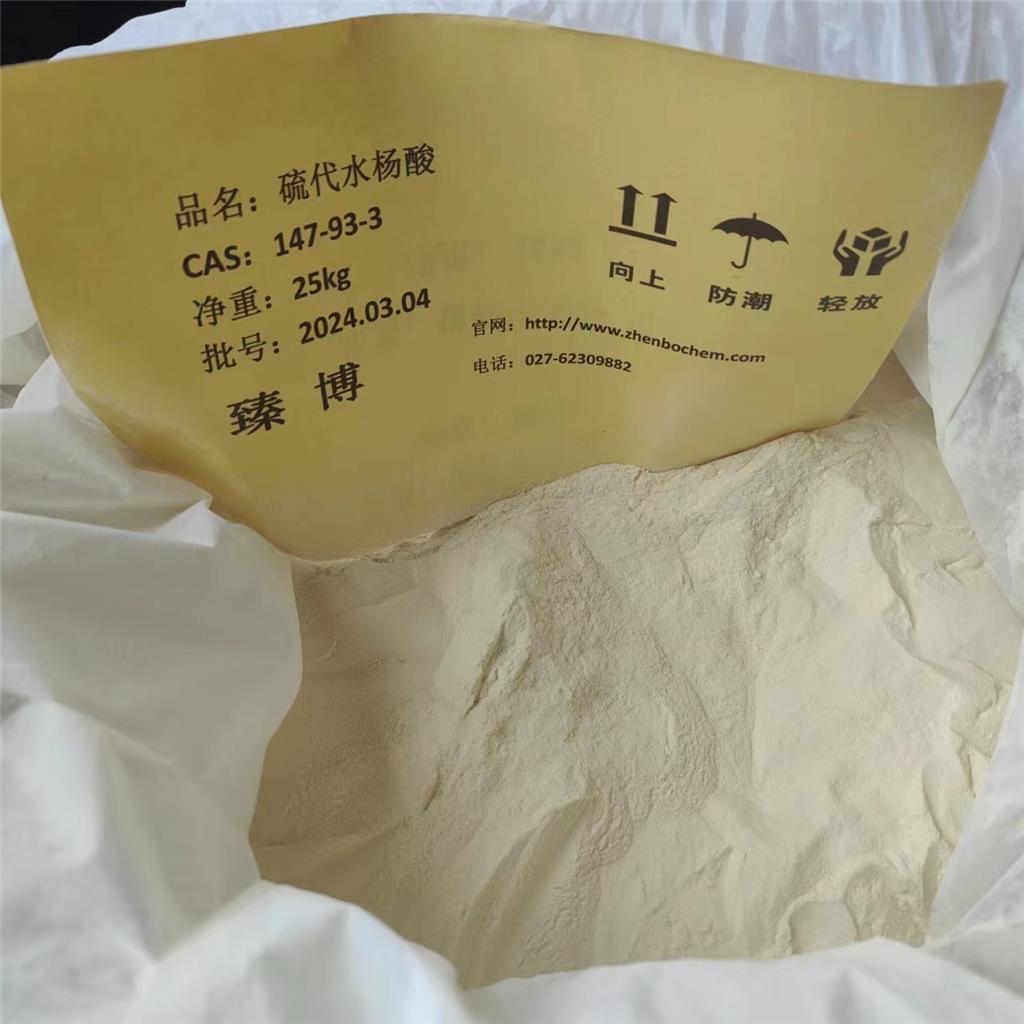 品名：硫代水杨酸
CAS：147-93-3
净重：25kg
批号：2024.03.04
臻 博
官网：http://www.zhenbochem.com
电话：027-62309882
向上
防潮
轻放